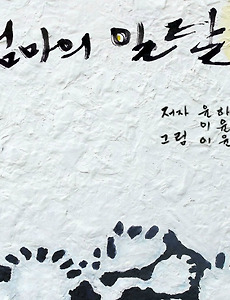 엄마의 일탈
저자 윤하
이윤
그림 이윤